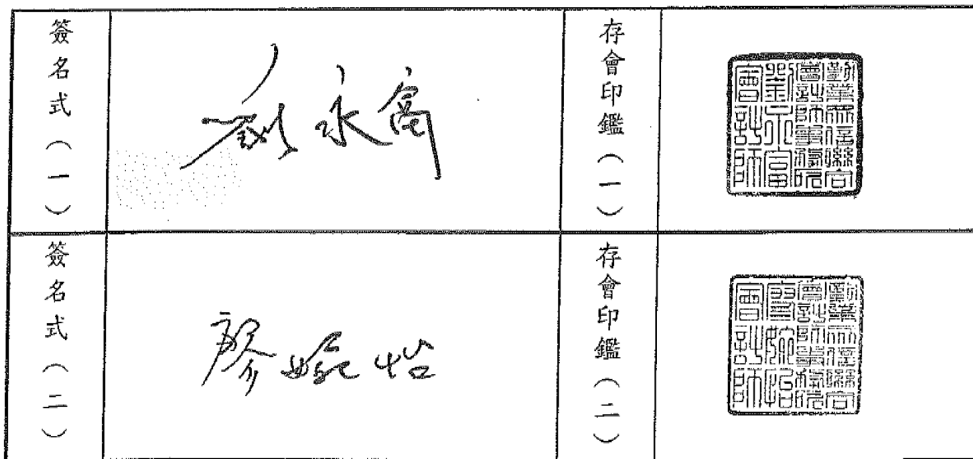 簽名式（一）
劉永富
存會印鑑（一）
勤業眾信聯合
會計師事務所
劉永富
會計師
簽名式（二）
廖婉怡
存會印鑑（二）
勤業眾信聯合
會計師事務所
廖婉怡
會計師